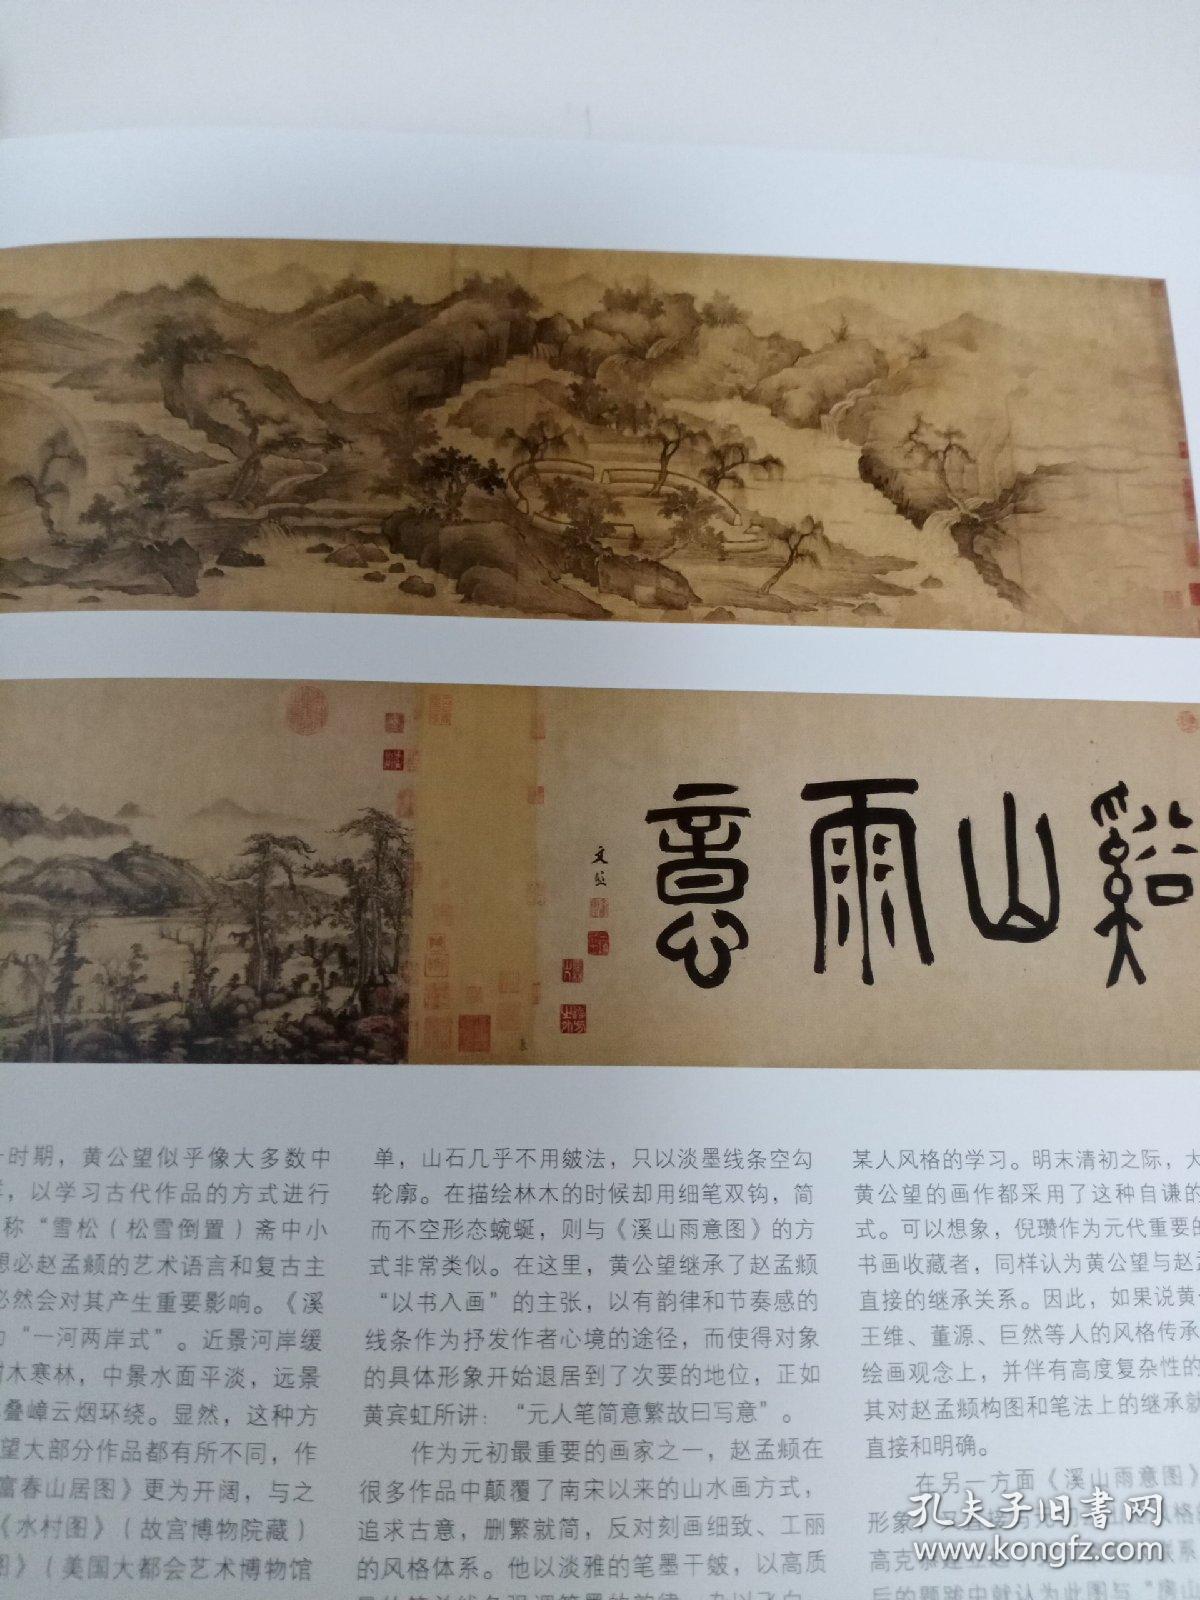 谿山雨意
文彭
时期，黄公望似乎像大多数中
，以学习古代作品的方式进行
称“雪松（松雪倒置）斋中小
想必赵孟頫的艺术语言和复古主
必然会对其产生重要影响。《溪
“一河两岸式”。近景河岸缓
树木寒林，中景水面平淡，远景
叠嶂云烟环绕。显然，这种方
望大部分作品都有所不同，作
富春山居图》更为开阔，与之
《水村图》（故宫博物院藏）
图》（美国大都会艺术博物馆
单，山石几乎不用皴法，只以淡墨线条空勾
轮廓。在描绘林木的时候却用细笔双钩，简
而不空形态蜿蜒，则与《溪山雨意图》的方
式非常类似。在这里，黄公望继承了赵孟頫
“以书入画”的主张，以有韵律和节奏感的
线条作为抒发作者心境的途径，而使得对象
的具体形象开始退居到了次要的地位，正如
黄宾虹所讲：“元人笔简意繁故曰写意”。
作为元初最重要的画家之一，赵孟頫在
很多作品中颠覆了南宋以来的山水画方式，
追求古意，删繁就简，反对刻画细致、工丽
的风格体系。他以淡雅的笔墨干皴，以高质
某人风格的学习。明末清初之际，大
黄公望的画作都采用了这种自谦的
式。可以想象，倪瓒作为元代重要的
书画收藏者，同样认为黄公望与赵孟
直接的继承关系。因此，如果说黄
王维、董源、巨然等人的风格传承
绘画观念上，并伴有高度复杂性的
其对赵孟頫构图和笔法上的继承就
直接和明确。
在另一方面《溪山雨意图》
形象
高克恭
后的题跋中就认为此图与“房山
孔夫子旧书网
www.kongfz.com